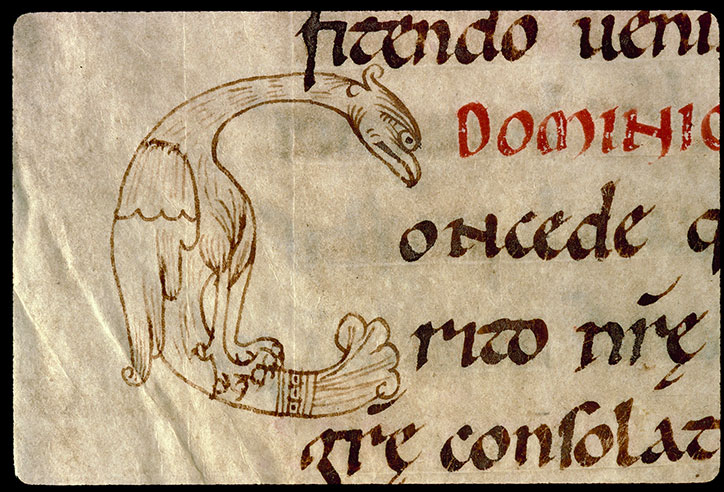 fitendo ueni
DOMINIC
Concede q
rito nr̄ę
gr̄ę consolat